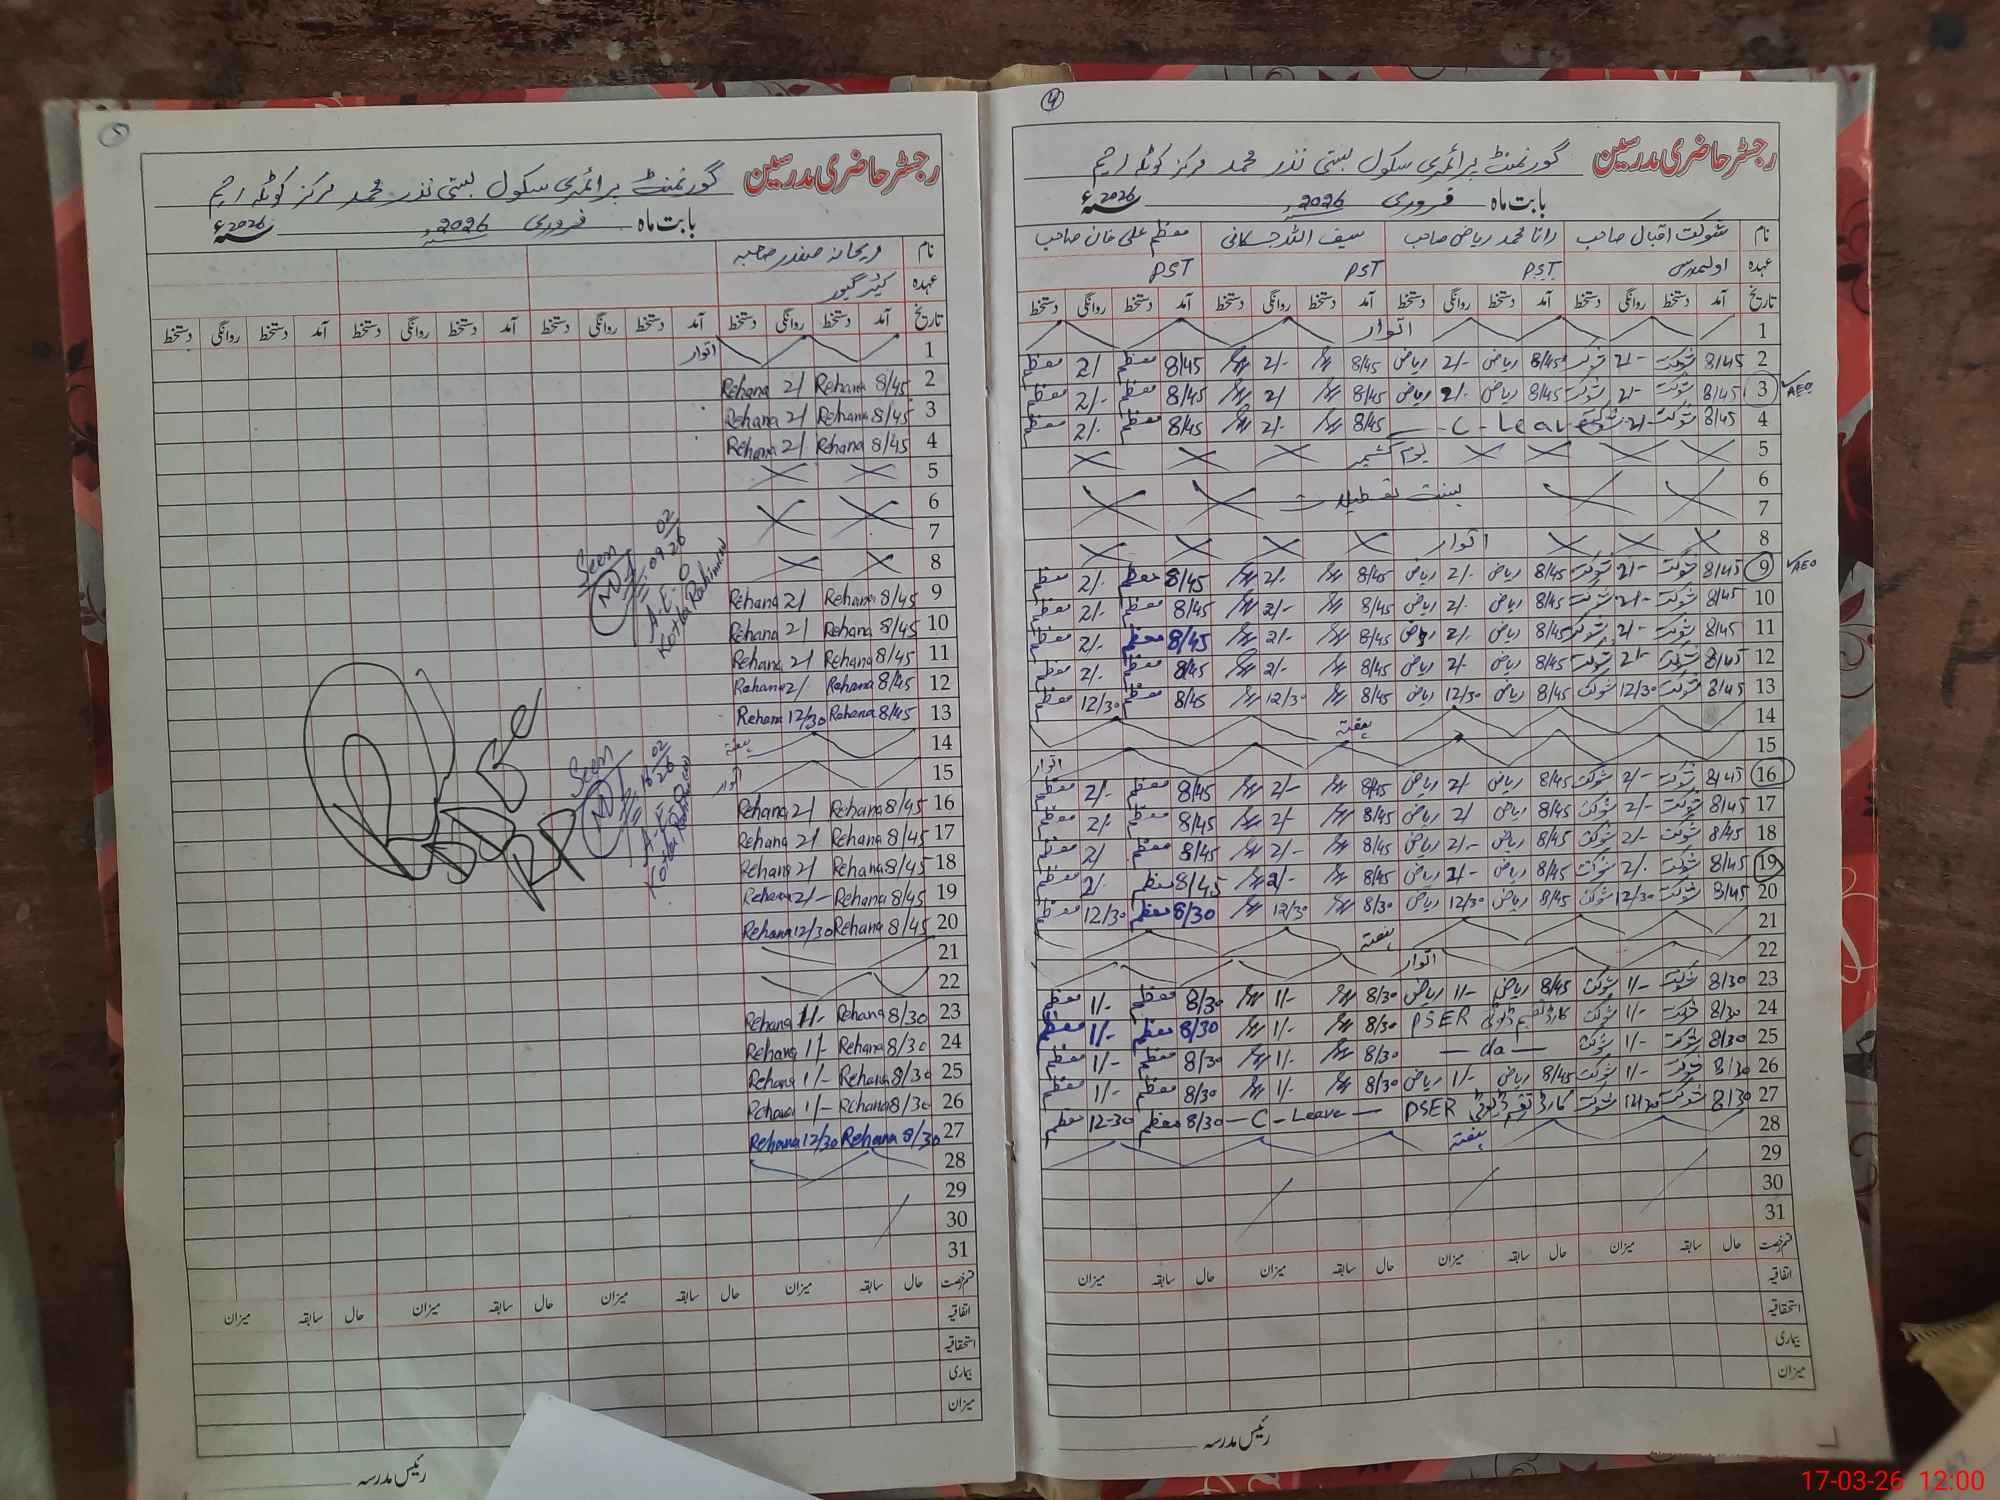 4
رجسٹر حاضری مدرسین گورنمنٹ پرائمری سکول بستی نذر محمد مرکز کوٹلہ رحیم
بابت ماہ فروری 2026ء سنہ 2026ء
نام شوکت اقبال صاحب رانا محمد ریاض صاحب سیف اللہ جسکانی معظم علی خان صاحب
عہدہ اول مدرس PST PST PST
تاریخ آمد دستخط روانگی دستخط آمد دستخط روانگی دستخط آمد دستخط روانگی دستخط آمد دستخط روانگی دستخط
1 اتوار
2 8/45 شوکت 2/- شوکت 8/45 ریاض 2/- ریاض 8/45 2/- 8/45 معظم 2/ معظم
3 8/45 شوکت 2/- شوکت 8/45 ریاض 2/- ریاض 8/45 2/ 8/45 معظم 2/- معظم ✓AEO
4 8/45 شوکت 2/- شوکت C-Leave 8/45 2/- 8/45 معظم 2/- معظم
5 یوم کشمیر
6 بسنت تعطیلات
7
8 اتوار
9 8/45 شوکت 2/- شوکت 8/45 ریاض 2/- ریاض 8/45 2/- 8/45 معظم 2/- معظم ✓AEO
10 8/45 شوکت 2/- شوکت 8/45 ریاض 2/- ریاض 8/45 2/- 8/45 معظم 2/- معظم
11 8/45 شوکت 2/- شوکت 8/45 ریاض 2/- ریاض 8/45 2/- 8/45 معظم 2/- معظم
12 8/45 شوکت 2/- شوکت 8/45 ریاض 2/- ریاض 8/45 2/- 8/45 معظم 2/- معظم
13 8/45 شوکت 12/30 شوکت 8/45 ریاض 12/30 ریاض 8/45 12/30 8/45 معظم 12/30 معظم
14 ہفتہ
15 اتوار
16 8/45 شوکت 2/- شوکت 8/45 ریاض 2/- ریاض 8/45 2/- 8/45 معظم 2/- معظم
17 8/45 شوکت 2/- شوکت 8/45 ریاض 2/ ریاض 8/45 2/- 8/45 معظم 2/- معظم
18 8/45 شوکت 2/- شوکت 8/45 ریاض 2/- ریاض 8/45 2/- 8/45 معظم 2/ معظم
19 8/45 شوکت 2/- شوکت 8/45 ریاض 2/- ریاض 8/45 2/- 8/45 معظم 2/- معظم
20 8/45 شوکت 12/30 شوکت 8/45 ریاض 12/30 ریاض 8/30 12/30 8/30 معظم 12/30 معظم
21 ہفتہ
22 اتوار
23 8/30 شوکت 1/- شوکت 8/45 ریاض 1/- ریاض 8/30 1/- 8/30 معظم 1/- معظم
24 8/30 شوکت 1/- شوکت PSER کارڈ تقسیم ڈیوٹی 8/30 1/- 8/30 معظم 1/- معظم
25 8/30 شوکت 1/- شوکت — do — 8/30 1/- 8/30 معظم 1/- معظم
26 8/30 شوکت 1/- شوکت 8/45 ریاض 1/- ریاض 8/30 1/- 8/30 معظم 1/- معظم
27 8/30 شوکت 12/30 شوکت PSER کارڈ تقسیم ڈیوٹی — C - Leave — 8/30 معظم 12-30 معظم
28 ہفتہ
29
30
31
قسم رخصت حال سابقہ میزان حال سابقہ میزان حال سابقہ میزان حال سابقہ میزان
اتفاقیہ
استحقاقیہ
بیماری
میزان
رئیس مدرسہ
رجسٹر حاضری مدرسین گورنمنٹ پرائمری سکول بستی نذر محمد مرکز کوٹلہ رحیم
بابت ماہ فروری 2026ء سنہ 2026ء
نام ریحانہ صفدر صاحبہ
عہدہ کیئر گیور
تاریخ آمد دستخط روانگی دستخط آمد دستخط روانگی دستخط آمد دستخط روانگی دستخط آمد دستخط روانگی دستخط
1 اتوار
2 8/45 Rehana 2/ Rehana
3 8/45 Rehana 2/ Rehana
4 8/45 Rehana 2/ Rehana
5
6
7
8
9 8/45 Rehana 2/ Rehana
10 8/45 Rehana 2/ Rehana
11 8/45 Rehana 2/ Rehana
12 8/45 Rehana 2/ Rehana
13 8/45 Rehana 12/30 Rehana
14 ہفتہ
15 اتوار
16 8/45 Rehana 2/ Rehana
17 8/45 Rehana 2/ Rehana
18 8/45 Rehana 2/ Rehana
19 8/45 Rehana 2/- Rehana
20 8/45 Rehana 12/30 Rehana
21
22
23 8/30 Rehana 1/- Rehana
24 8/30 Rehana 1/- Rehana
25 8/30 Rehana 1/- Rehana
26 8/30 Rehana 1/- Rehana
27 8/30 Rehana 12/30 Rehana
28
29
30
31
Seen
09-02-26
A.E.O
Kotla Rahim
Seen
16-02-26
A.E.O
Kotla Rahim
قسم رخصت حال سابقہ میزان حال سابقہ میزان حال سابقہ میزان حال سابقہ میزان
اتفاقیہ
استحقاقیہ
بیماری
میزان
رئیس مدرسہ
17-03-26 12:00